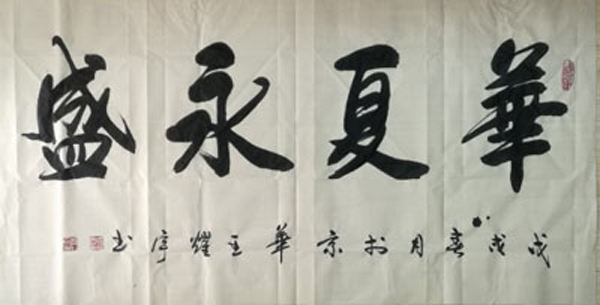 華夏永盛
戊戌春月於京華王耀淳书